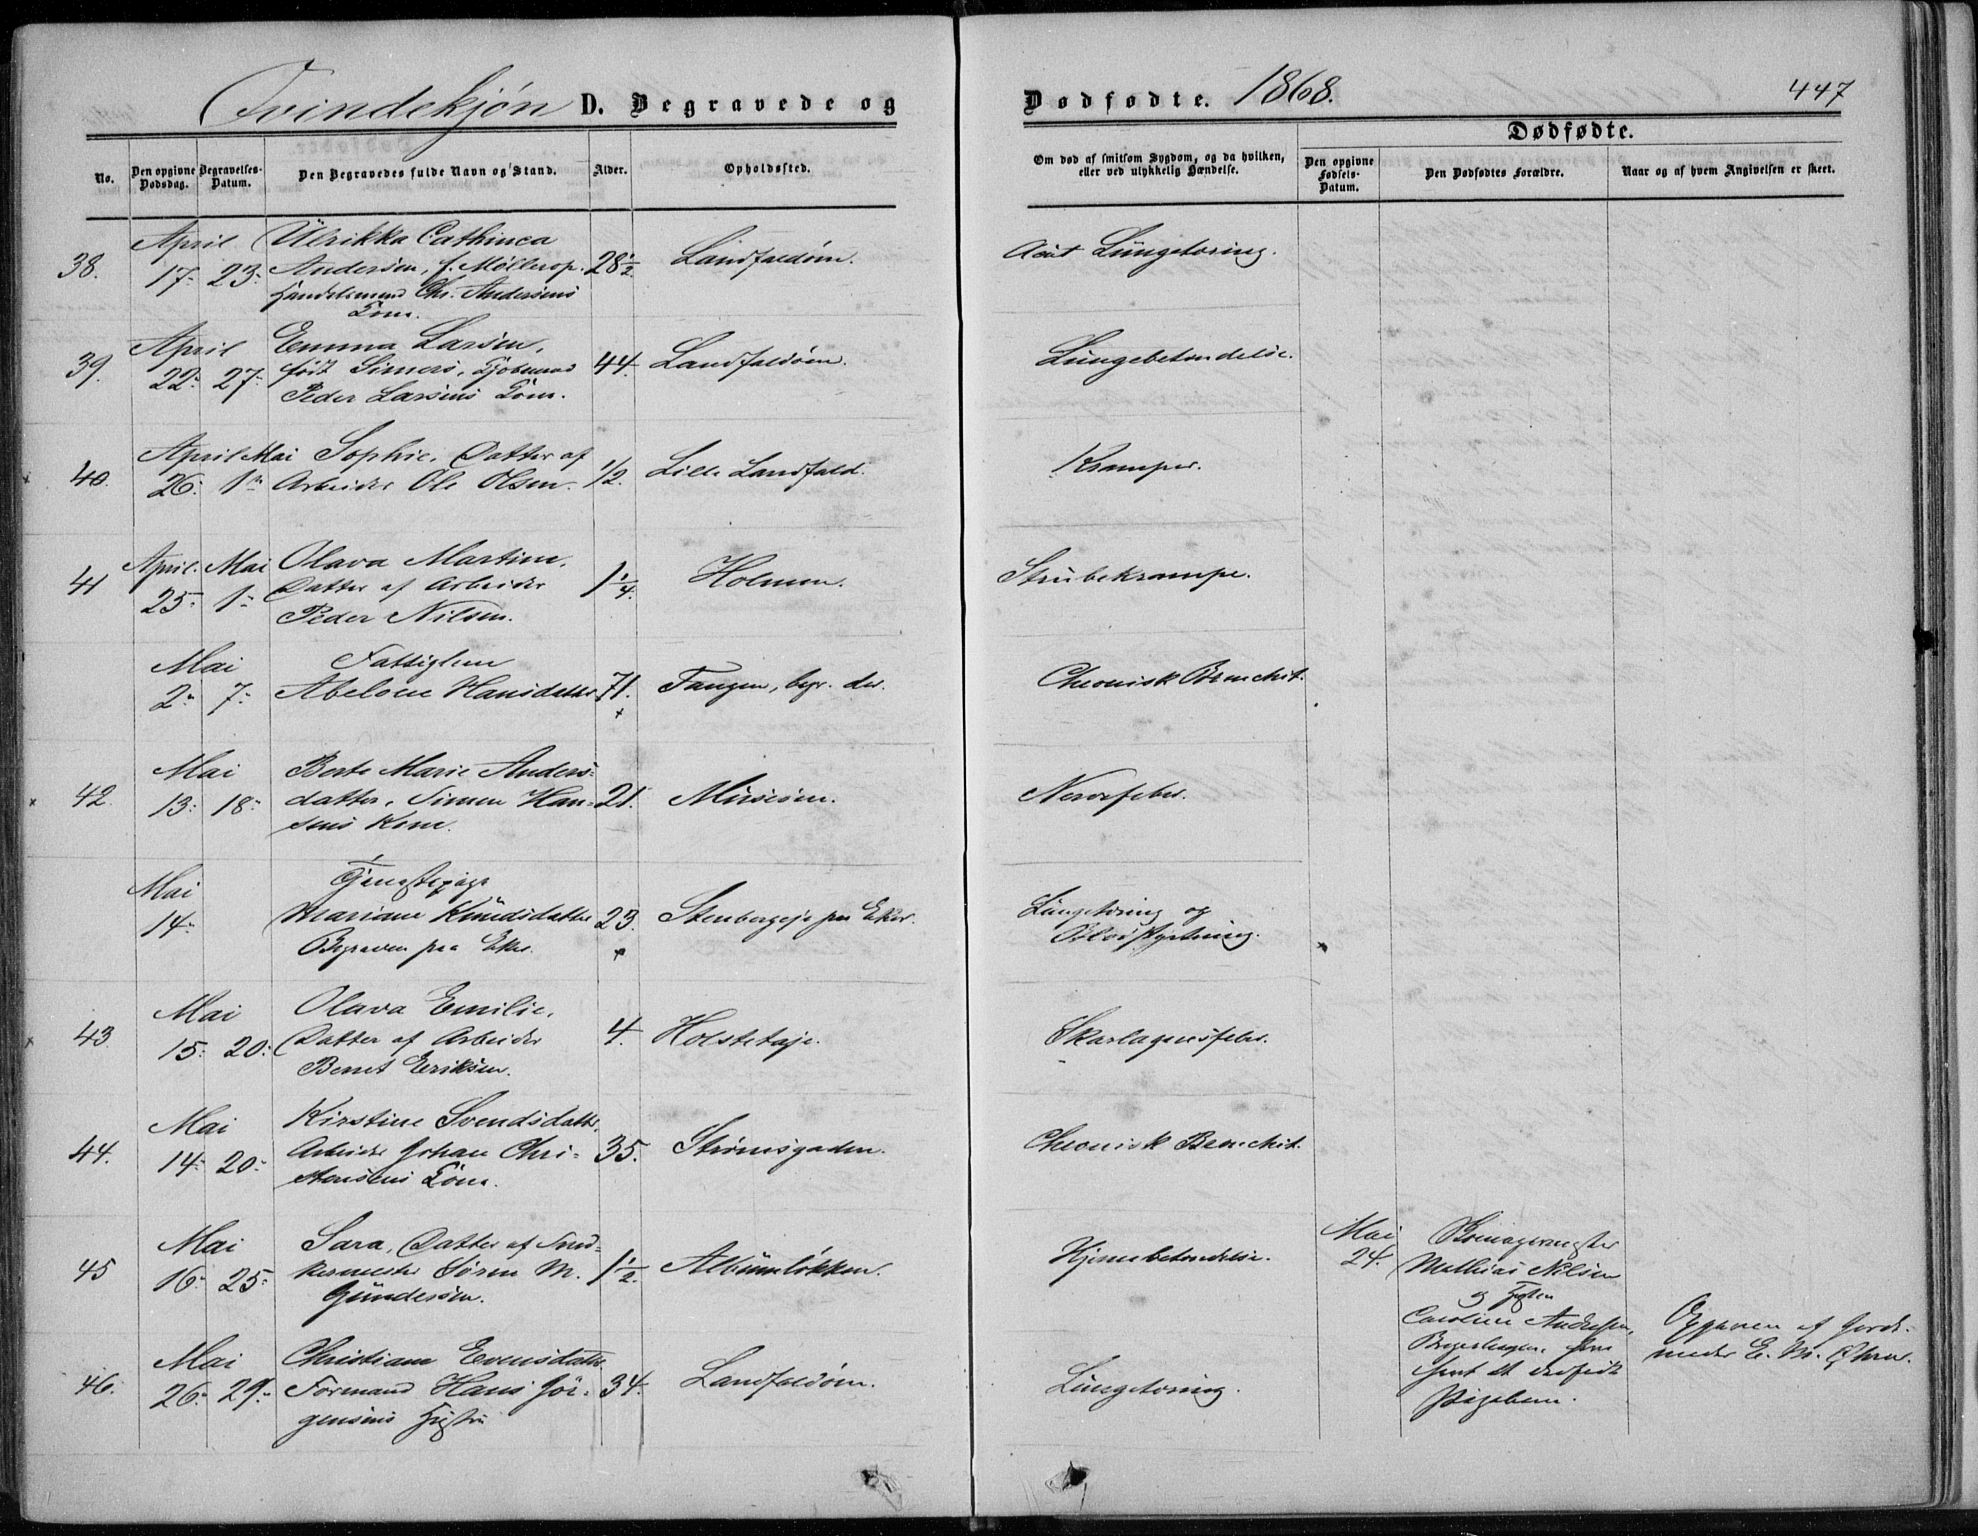 Qvindekjön D. Begravede og
Dødfødte. 1868. 447
No.
Den opgivne Dødsdag.
Begravelses-Datum.
Den Begravedes fulde Navn og Stand.
Alder.
Opholdssted.
Om død af smitsom Sygdom, og da hvilken, eller ved ulykkelig Hændelse.
Dødfødte.
Den opgivne Fødsels-Datum.
Den Dødfødtes Forældre.
Naar og af hvem Angivelsen er skeet.
38. April 17. 23. Ulrikka Cathinca
Andersen, f. Møllerop. 28 1/2 Landfaldøen. Acut Lungetæring.
Handelsmand Chr. Andersens
Kone.
39. April 22. 27. Emma Larsen,
født Simers, 44. Landfaldøen. Lungebetændelse.
Peder Larsens Kone.
40. April 26. Mai 1. Sophie, Datter af
Arbeider Ole Olsen. 1/2. Lille Landfald. Kramper.
41 April 25. Mai 1. Olava Martine,
Datter af Arbeider 1 1/4. Holmen. Strubekrampe.
Peder Nilsen.
Mai 2. 7. Fattiglem
Abelone Hansdatter 71. Tangen, begr. der. Chronisk Bronchit.
42. Mai 13. 18. Berte Marie Anders-
datter, Simen Han- 21. Muusøen. Nervefeber.
sens Kone.
Mai 14. Tjenestepige
Mariane Knudsdatter 23. Stenbergeje paa Eker. Lungetæring og
Begraven paa Eker. Blodstyrtning.
43. Mai 15. 20. Olava Emilie,
Datter af Arbeider 4. Holsteteje. Skarlagensfeber.
Bernt Eriksen.
44. Mai 14. 20. Kirstine Svendsdatter,
Arbeider Johan Chri- 35. Strømsgaden. Chronisk Bronchit.
stensens Kone.
45 Mai 16. 25. Sara, Datter af Sned-
kermester Søren M. 1 1/2. Albumløkken. Hjernebetændelse.
Gundersen.
46. Mai 26. 29. Christiane Evensdatter
Formand Hans Jör- 34. Landfaldøen. Lungetæring.
gensens Hustru
Mai 24.
Mathias Nilsen
og Hustru
Caroline Andersen,
Bragerhagen,
født et dødfødt
Pigebarn.
Opgaven af Jorde-
moder E. M. Øhrn.